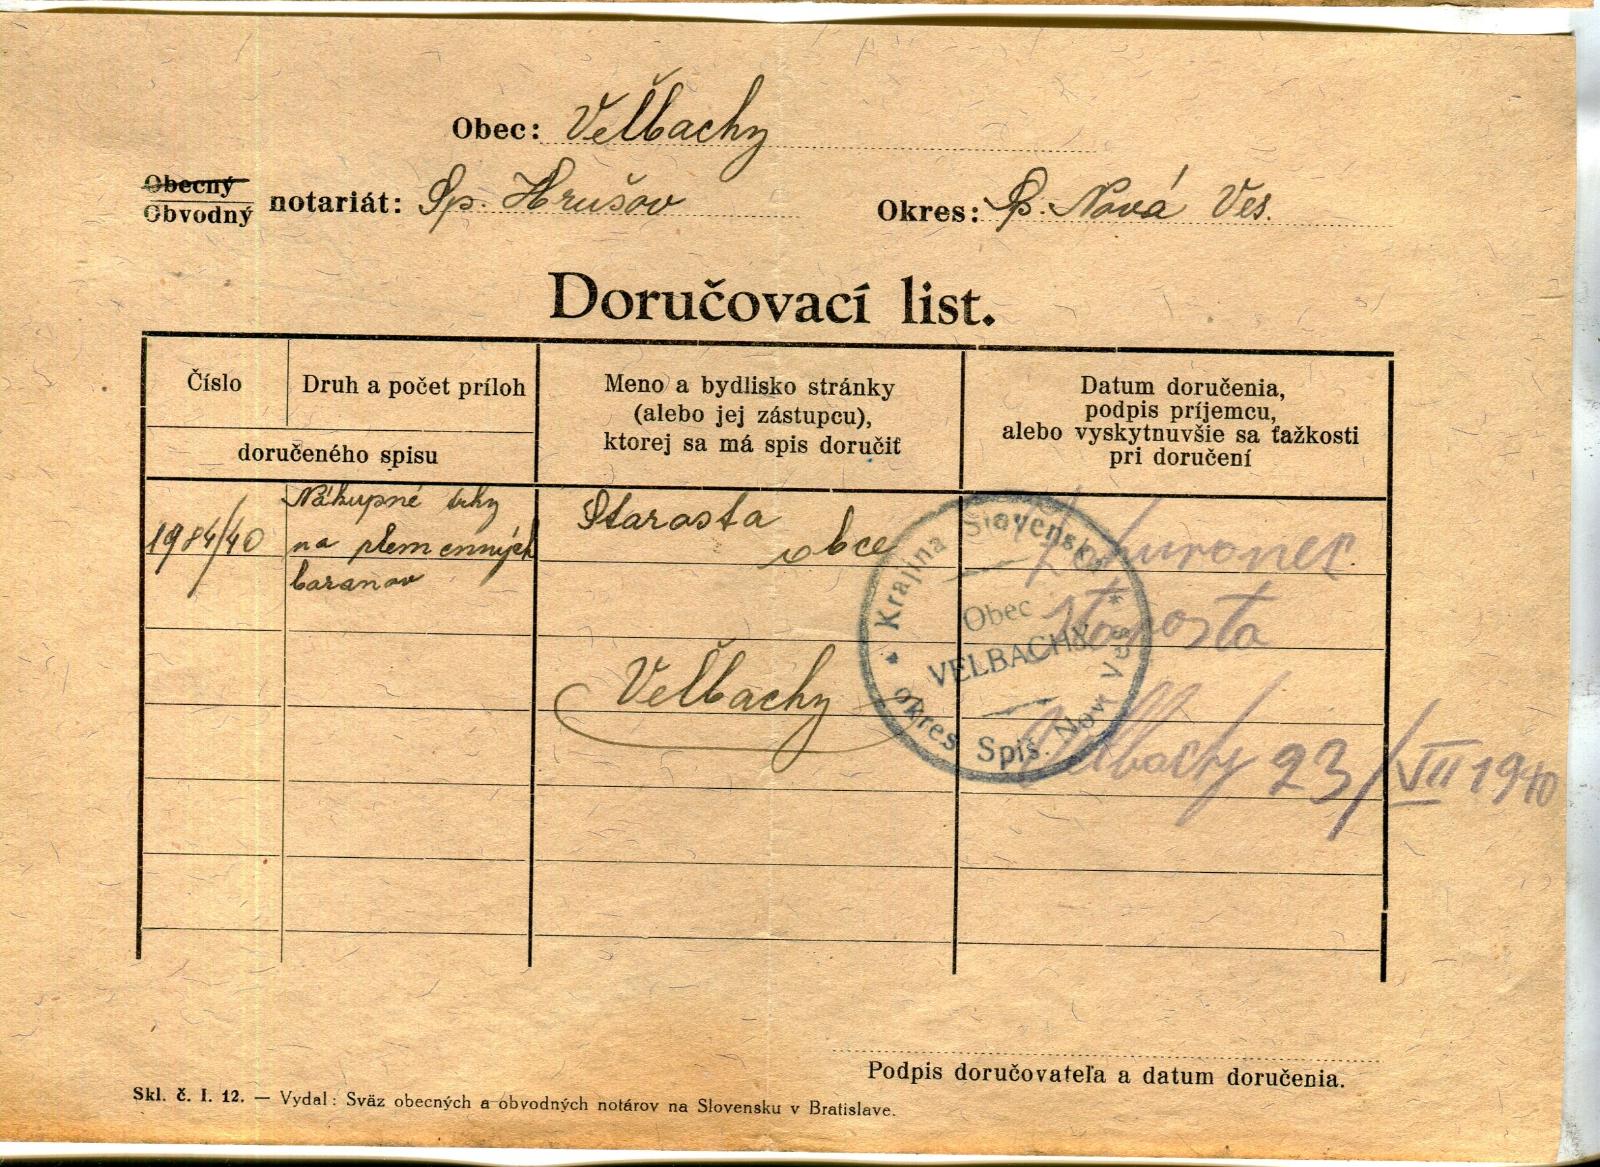 Obec: Veľbachy
Obecný
Obvodný notariát: Sp. Hrušov Okres: Sp. Nová Ves.
Doručovací list.
Číslo Druh a počet príloh
doručeného spisu
Meno a bydlisko stránky
(alebo jej zástupcu),
ktorej sa má spis doručiť
Datum doručenia,
podpis príjemcu,
alebo vyskytnuvšie sa ťažkosti
pri doručení
1984/40
Nákupné trhy
na plemenných
baranov
Starosta
obce
Veľbachy
Krajina Slovensko
Obec
VELBACHY
okres Spiš. Nov. Ves
starosta
Velbachy 23/VII 1940
Podpis doručovateľa a datum doručenia.
Skl. č. I. 12. — Vydal: Sväz obecných a obvodných notárov na Slovensku v Bratislave.